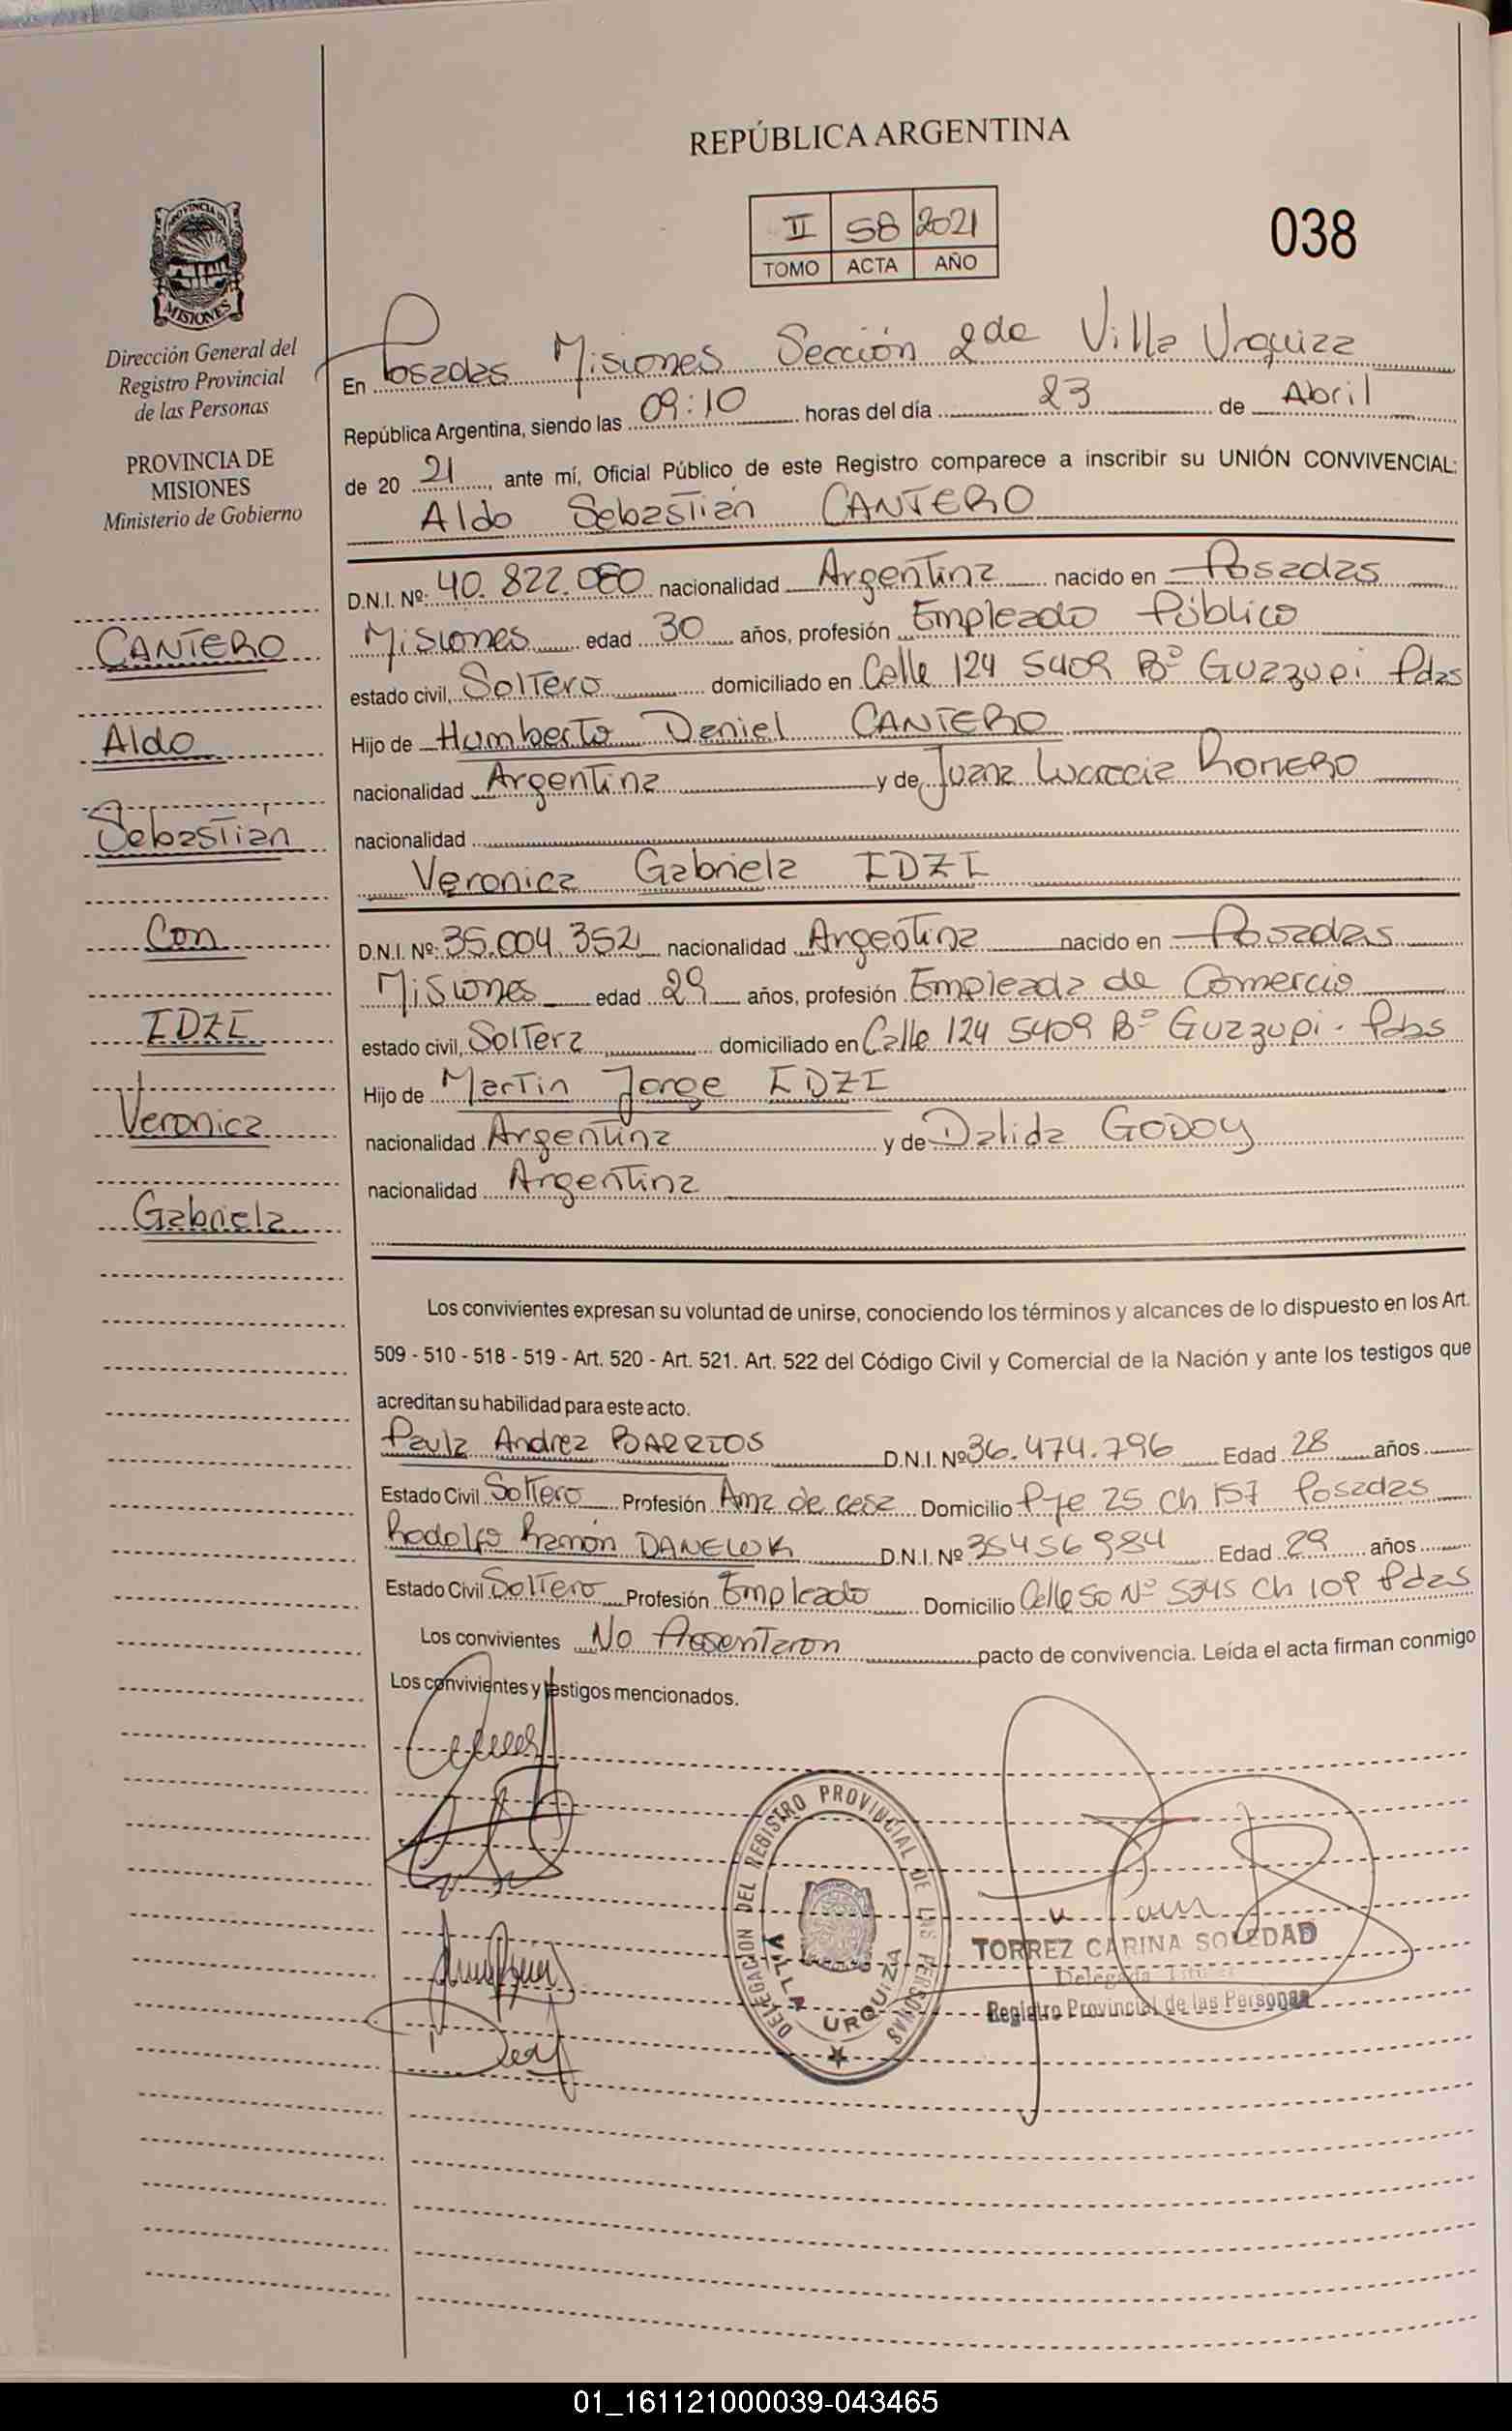 REPÚBLICA ARGENTINA
II 58 2021
TOMO ACTA AÑO
038
PROVINCIA DE
MISIONES
Dirección General del
Registro Provincial
de las Personas
PROVINCIA DE
MISIONES
Ministerio de Gobierno
CANTERO
Aldo
Sebastián
Con
IDZI
Veronica
Gabriela
En Posadas Misiones Sección 2da Villa Urquiza
República Argentina, siendo las 09:10 horas del día 23 de Abril
de 20 21, ante mí, Oficial Público de este Registro comparece a inscribir su UNIÓN CONVIVENCIAL:
Aldo Sebastián CANTERO
D.N.I. Nº: 40.822.080 nacionalidad Argentina nacido en Posadas
Misiones edad 30 años, profesión Empleado Público
estado civil, Soltero domiciliado en Calle 124 5409 Bº Guzzupi Pdas
Hijo de Humberto Daniel CANTERO
nacionalidad Argentina y de Juana Lucrecia ROMERO
nacionalidad
Veronica Gabriela IDZI
D.N.I. Nº: 35.004.352 nacionalidad Argentina nacido en Posadas
Misiones edad 29 años, profesión Empleada de Comercio
estado civil, Soltera domiciliado en Calle 124 5409 Bº Guzzupi - Pdas
Hijo de Martin Jorge IDZI
nacionalidad Argentina y de Dalida GODOY
nacionalidad Argentina
Los convivientes expresan su voluntad de unirse, conociendo los términos y alcances de lo dispuesto en los Art.
509 - 510 - 518 - 519 - Art. 520 - Art. 521. Art. 522 del Código Civil y Comercial de la Nación y ante los testigos que
acreditan su habilidad para este acto.
Paula Andrea BARRIOS D.N.I. Nº 36.474.796 Edad 28 años
Estado Civil Soltero Profesión Ama de casa Domicilio Pje 25 Ch 157 Posadas
Rodolfo Ramón DANELUK D.N.I. Nº 35456984 Edad 29 años
Estado Civil Soltero Profesión Empleado Domicilio Calle 50 Nº 5345 Ch 109 Pdas
Los convivientes No Presentaron pacto de convivencia. Leída el acta firman conmigo
Los convivientes y testigos mencionados.
DELEGACION DEL REGISTRO PROVINCIAL DE LAS PERSONAS
VILLA URQUIZA
TORREZ CARINA SOLEDAD
Delegada Titular
Registro Provincial de las Personas
01_161121000039-043465